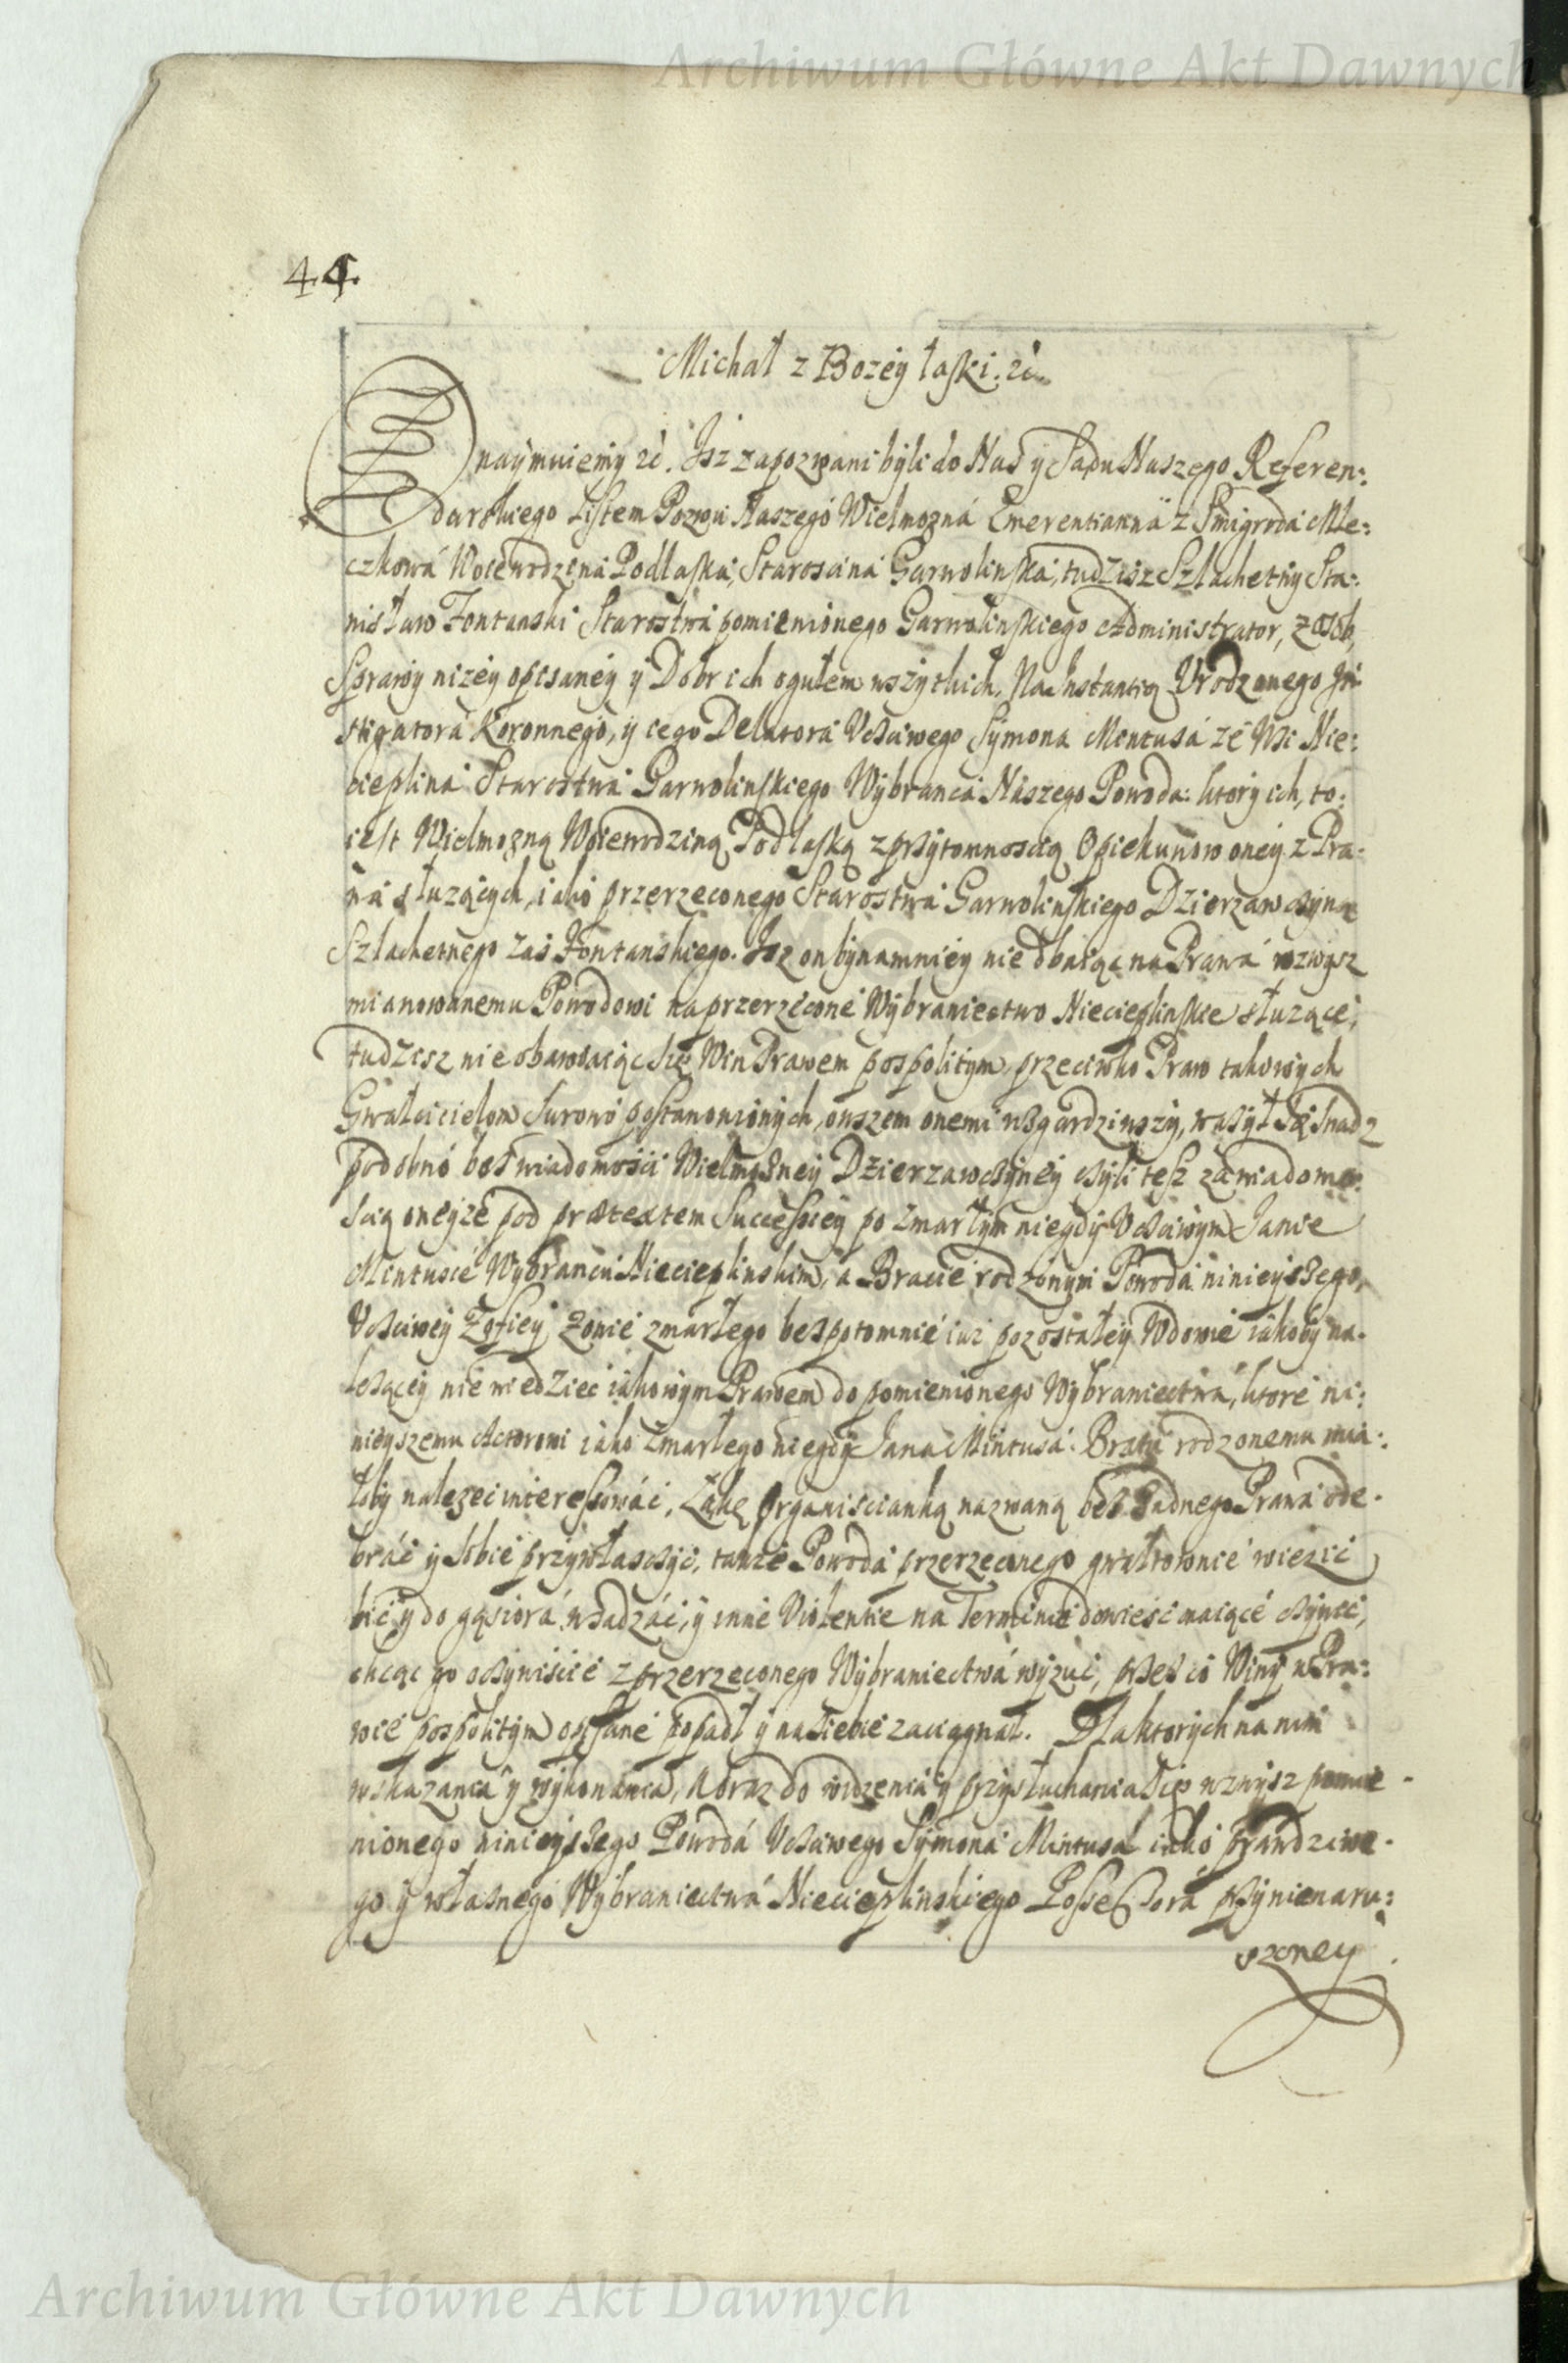 Archiwum Główne Akt Dawnych
44.
Michał z Bozey łaski. zc
Znaymuiemy zc. Isz zapozwani byli do Nas y Sądu Naszego Referen:
darskiego Listem Pozwu Naszego Wielmozná Emerentianná z Smigrodá Mle:
czkowá Woiewodzina Podlaska, Staroscina Garwolinska, tudzisz Szlachetny Sta:
nisław Fontanski Starostwá pomienionego Garwolinskiego Administrator, z osob,
Sprawy nizey opisaney y Dobr ich ogułem wszytkich. Na Instantią Vrodzonego In
stigatorá Koronnego, y iego Delatorá Vcściwego Symona Mentusá ze Wsi Nie:
cieplina Starostwá Garwolinskiego Wybranca Naszego Powoda: ktorych, to:
iest Wielmozną Woiewodziną Podlaską z przytomnoscią Opiekunow oney z Pra:
wá słuzących, iako przerzeconego Starostwá Garwolinskiego Dzierzawczyną
Szlachetnego zaś Fontanskiego. Isz on bynamniey nie dbaiąc na Prawá wzwysz
mianowanemu Powodowi na przerzeconé Wybraniectwo Niecieplinskie słuzącé,
tudzisz nie obawiaiąc się Win Prawem pospolitym, przeciwko Praw takowych
Gwałcicielom surowo postanowionych, owszem onemi wzgardziwszy, wazył się snadz
podobno bes wiadomości Wielmozney Dzierzawczyney czyli tesz za wiadomo:
scią oneyze pod prætextem Successiey po zmarłym niegdy Vcściwym Janie
Mintusie Wybrancu Niecieplinskim, a Bracie rodzonym Powodá ninieyszego,
Vcściwey Zofiey Zonie zmarłego bespotomnie iuz pozostałey Wdowie iakoby na:
lezącey nie wiedziec iakowym Prawem do pomienionego Wybraniectwá, ktore ni:
nieyszemu Actorowi iako zmarłego niegdy Jana Mintusá Bratu rodzonemu mia:
łoby nalezec interessowác, Łąkę Organiscianką nazwaną bes zadnego Prawa ode:
brác y sobie przywłaszczyc, takze Powodá przerzeconego gwałtownie więzic
bic y do gąsiora wsadzác, y inne Violentie na Terminie dowieśc maiącé czynic,
chcąc go oczywiscie z przerzeconego Wybraniectwá wyzuc, przez co Winy w Pra:
wie pospolitym opisane popadł y na siebie zaciągnął. Dla ktorych na nim
wskazania y wykonania, A oraz do widzenia y przysłuchania się wzwysz pomie:
nionego ninieyszego Powodá Vcściwego Symona Mintusá iako prawdziwe:
go y własnego Wybraniectwá Niecieplinskiego Possessorá przy nienaru:
szoney
Archiwum Główne Akt Dawnych